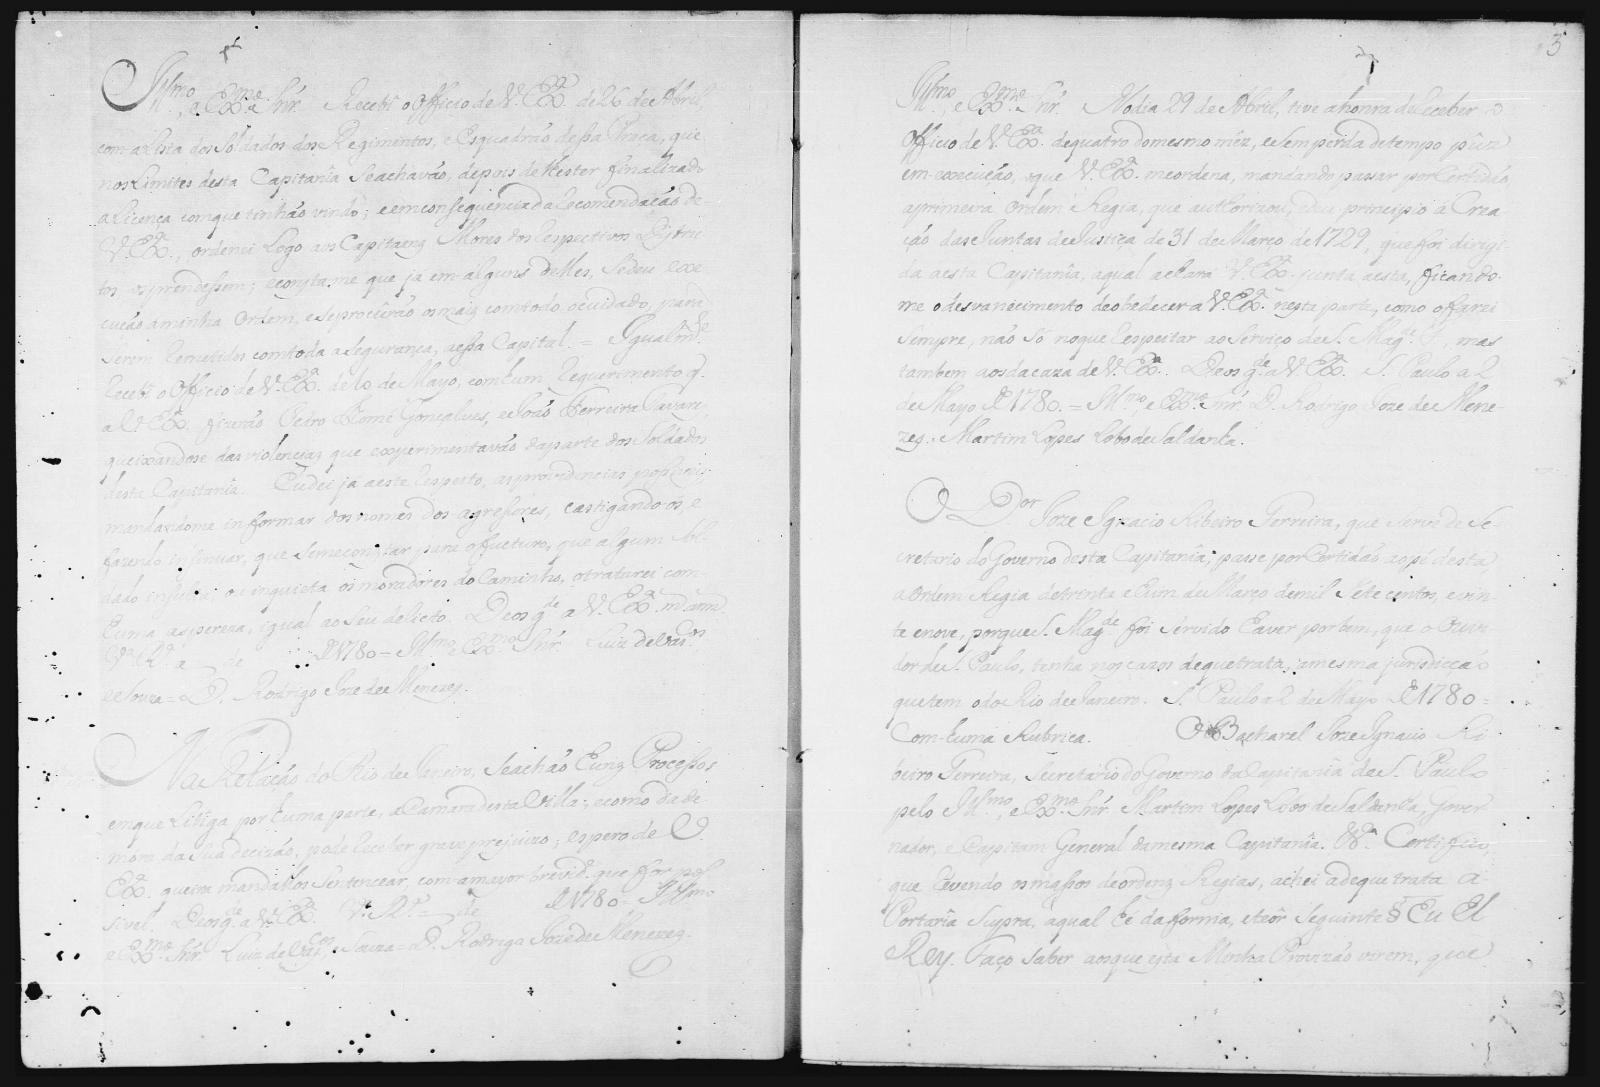 Illmo, e Exmo Snr. Recebi o Officio de V. Exa de 26 de Abril,
com a Lista dos Soldados dos Regimentos, e Esquadrão dessa Praça, que
nos Limites desta Capitanîa se acháváo, depois de ter finalizado
a Licença com que tinháo vindo; e em consequencia da recomendação de
V. Exa, ordenei Logo aos Capitaens Móres dos respectivos Distric
tos os prendessem; e consta-me que ja em alguns delles, se deu exe
cução a minha Ordem, e se procûráo os mais com todo o cuidado, para
serem remetidos com toda a segurança, a essa Capital. = Igualmte
recebî o Officio de V. Exa de 10 de Mayo, com hum requerimento q.
a V. Exa fizeráo Pedro Thomé Gonçalves, e João Ferreira Tavares
queixandose das violencias que experimentaváo da parte dos Soldados
desta Capitanîa. Eu dei ja a este respeito, as providencias possiveis,
mandandome informar dos nomes dos agressores, castigando-os, e
fazendo insinuar, que se me constar para o futuro, que algum Sol-
dado insulta ou inquieta os moradores do Caminho, o tratarei com
huma aspereza, igual ao seu delicto. Deos gde a V. Exa m. ann.
Va Ra a de D 1780 = Illmo e Exmo Snr. Luiz de Vasos
e Souza = D. Rodrigo Joze de Menezes.
Na Relação do Rio de Janeiro, se acháo huns Processos
em que Litiga por huma parte, a Camara desta Villa; e como da de
mora da sua decizáo, pode receber grave prejuizo; espero de V.
Exa queira mandallos sentencear, com a mayor brevide que for pos
sivel. Deos gde a V. Exa Va Ra = de D 1780 = Illmo
e Exmo Snr. Luiz de Vascos e Souza = D. Rodrigo Joze de Menezes.
3
Illmo, e Exmo Snr. No dia 29 de Abril, tive a honra de receber o
Officio de V. Exa de quatro do mesmo mêz, e sem perda de tempo pûz
em execução, o que V. Exa me ordena, mandando passar por Certidáo,
a primeira Ordem Regia, que authorizou, e deu principio á Crea
ção das Juntas de Justiça de 31 de Março de 1729, que foi dirigi
da a esta Capitanîa, a qual achará V. Exa junta a esta, ficando-
me o desvanecimento de obedecer a V. Exa nesta parte, como o farei
sempre, não só no que respeitar ao Serviço de S. Magde F., mas
tambem aos da caza de V. Exa. Deos gde a V Exa. S. Paulo a 2
de Mayo D 1780. = Illmo, e Exmo Snr. D. Rodrigo Joze de Mene-
zes. Martim Lopes Lobo de Saldanha.
O Dor Joze Ignacio Ribeiro Ferreira, que serve de Se-
cretario do Governo desta Capitanîa; passe por Certidáo ao pé desta
a Ordem Regia de trinta e hum de Março de mil Sete centos, e vin-
te e nove, porque S. Magde foi servido haver por bem, que o Ouvi-
dor de S. Paulo, tenha nos cazos de que trata, a mesma jurisdicção
que tem o do Rio de Janeiro. S. Paulo a 2 de Mayo D 1780 =
Com huma Rubrica. O Bacharel Joze Ignacio Ri
beiro Ferreira, Secretario do Governo da Capitanîa de S. Paulo
pelo Illmo, e Exmo Snr. Martim Lopes Lobo de Saldanha, Gover
nador, e Capitam General da mesma Capitanîa. Va. Certifico,
que revendo os massos de ordens Regias, achei a de que trata a
Portaria supra, a qual hé da forma, e teôr seguinte § Eu El
Rey. Faço saber aos que esta Minha Provizáo virem, que